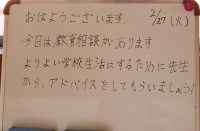 おはようございます。 2/27(火)
今日は、教育相談があります
よりよい学校生活にするために先生
から、アドバイスをしてもらいましょう!